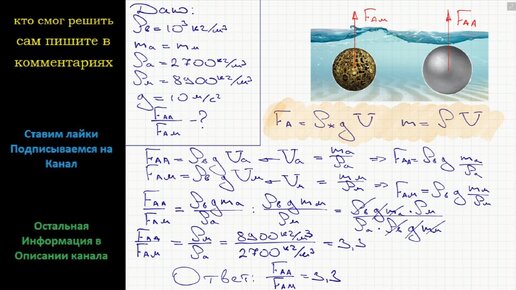 кто смог решить
сам пишите в
комментариях
Ставим лайки
Подписываемся на
Канал
Остальная
Информация в
Описании канала
Дано:
ρв = 10³ кг/м³
mа = mм
ρа = 2700 кг/м³
ρм = 8900 кг/м³
g = 10 м/с²
FАА/FАМ - ?
FАМ FАА
FА = ρж g V m = ρV
FАА = ρв g Vа ← Vа = mа/ρа ⇒ FАА = ρв g mа/ρа
FАМ = ρв g Vм ← Vм = mм/ρм ⇒ FАМ = ρв g mм/ρм
FАА/FАМ = ρв g mа/ρа : ρв g mм/ρм = ρв g mа · ρм/ρа · ρв g mм
FАА/FАМ = ρм/ρа = 8900 кг/м³/2700 кг/м³ = 3,3
Ответ: FАА/FАМ = 3,3